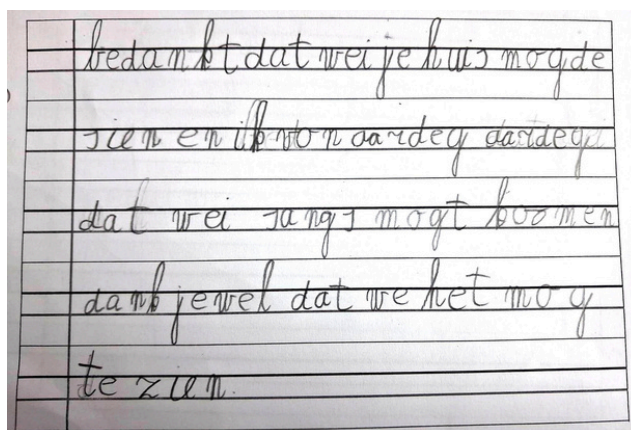 bedankt dat wei je huis mogde
sien en ik von aardeg aardeg
dat wei sangs mogt koomen
dank jewel dat we het mog
te zien.